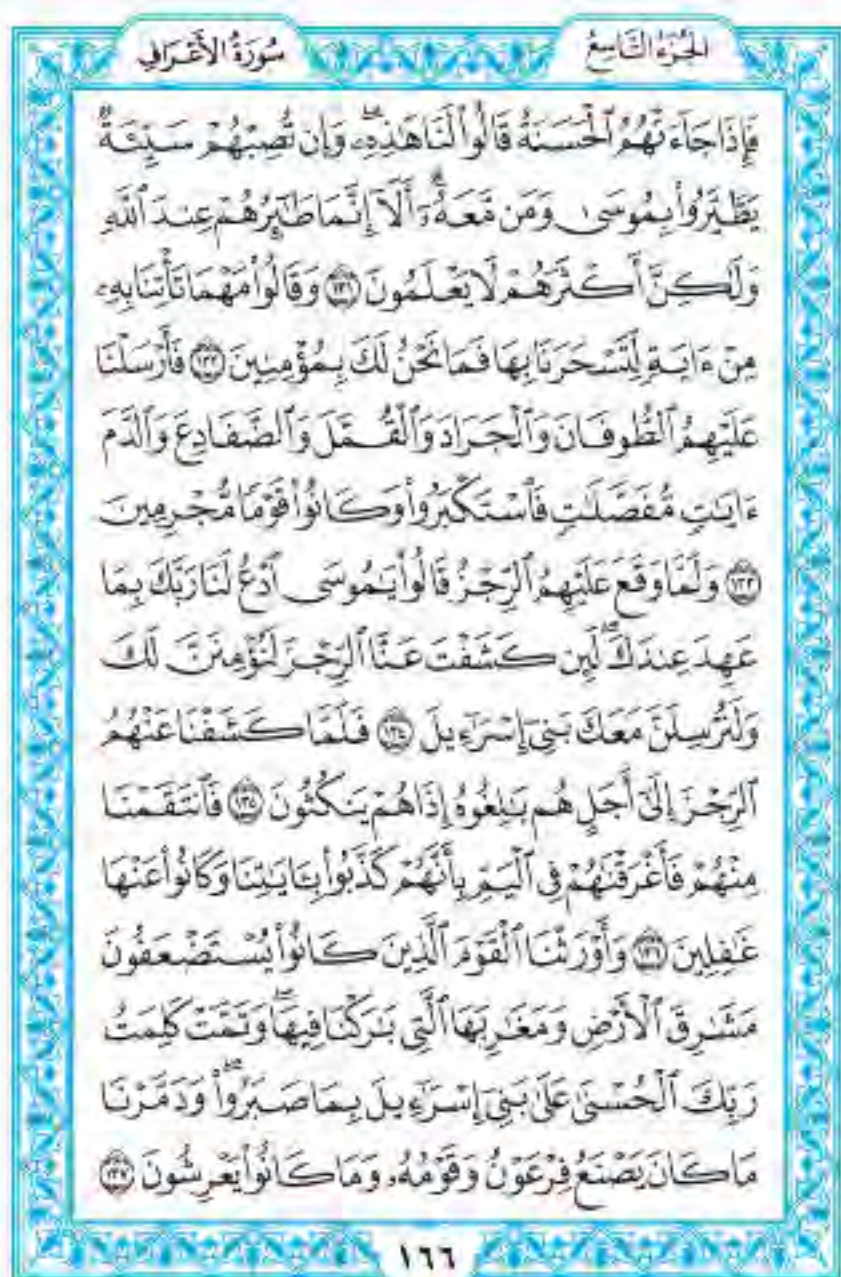 الجُزْءُ التَّاسِعُ
سُورَةُ الأَعْرَافِ
فَإِذَا جَآءَتْهُمُ ٱلْحَسَنَةُ قَالُوا۟ لَنَا هَـٰذِهِۦۖ وَإِن تُصِبْهُمْ سَيِّئَةٌ
يَطَّيَّرُوا۟ بِمُوسَىٰ وَمَن مَّعَهُۥٓۗ أَلَآ إِنَّمَا طَـٰٓئِرُهُمْ عِندَ ٱللَّهِ
وَلَـٰكِنَّ أَكْثَرَهُمْ لَا يَعْلَمُونَ ١٣١ وَقَالُوا۟ مَهْمَا تَأْتِنَا بِهِۦ
مِنْ ءَايَةٍ لِّتَسْحَرَنَا بِهَا فَمَا نَحْنُ لَكَ بِمُؤْمِنِينَ ١٣٢ فَأَرْسَلْنَا
عَلَيْهِمُ ٱلطُّوفَانَ وَٱلْجَرَادَ وَٱلْقُمَّلَ وَٱلضَّفَادِعَ وَٱلدَّمَ
ءَايَـٰتٍ مُّفَصَّلَـٰتٍ فَٱسْتَكْبَرُوا۟ وَكَانُوا۟ قَوْمًا مُّجْرِمِينَ
١٣٣ وَلَمَّا وَقَعَ عَلَيْهِمُ ٱلرِّجْزُ قَالُوا۟ يَـٰمُوسَى ٱدْعُ لَنَا رَبَّكَ بِمَا
عَهِدَ عِندَكَۖ لَئِن كَشَفْتَ عَنَّا ٱلرِّجْزَ لَنُؤْمِنَنَّ لَكَ
وَلَنُرْسِلَنَّ مَعَكَ بَنِىٓ إِسْرَٰٓءِيلَ ١٣٤ فَلَمَّا كَشَفْنَا عَنْهُمُ
ٱلرِّجْزَ إِلَىٰٓ أَجَلٍ هُم بَـٰلِغُوهُ إِذَا هُمْ يَنكُثُونَ ١٣٥ فَٱنتَقَمْنَا
مِنْهُمْ فَأَغْرَقْنَـٰهُمْ فِى ٱلْيَمِّ بِأَنَّهُمْ كَذَّبُوا۟ بِـَٔايَـٰتِنَا وَكَانُوا۟ عَنْهَا
غَـٰفِلِينَ ١٣٦ وَأَوْرَثْنَا ٱلْقَوْمَ ٱلَّذِينَ كَانُوا۟ يُسْتَضْعَفُونَ
مَشَـٰرِقَ ٱلْأَرْضِ وَمَغَـٰرِبَهَا ٱلَّتِى بَـٰرَكْنَا فِيهَاۖ وَتَمَّتْ كَلِمَتُ
رَبِّكَ ٱلْحُسْنَىٰ عَلَىٰ بَنِىٓ إِسْرَٰٓءِيلَ بِمَا صَبَرُوا۟ۖ وَدَمَّرْنَا
مَا كَانَ يَصْنَعُ فِرْعَوْنُ وَقَوْمُهُۥ وَمَا كَانُوا۟ يَعْرِشُونَ ١٣٧
١٦٦